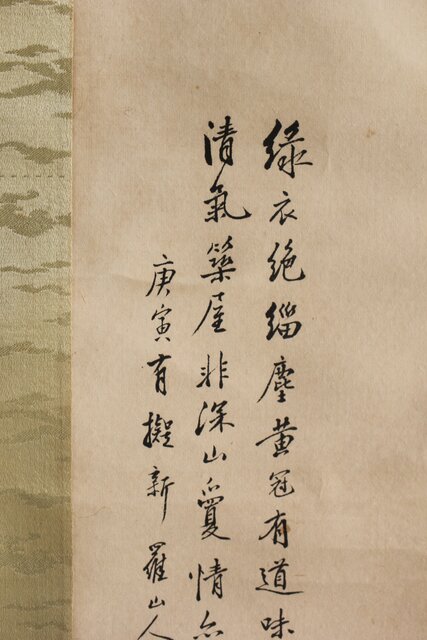 綠衣絶緇塵黄冠有道味
清氣築屋非深山愛情
庚寅有擬新羅山人